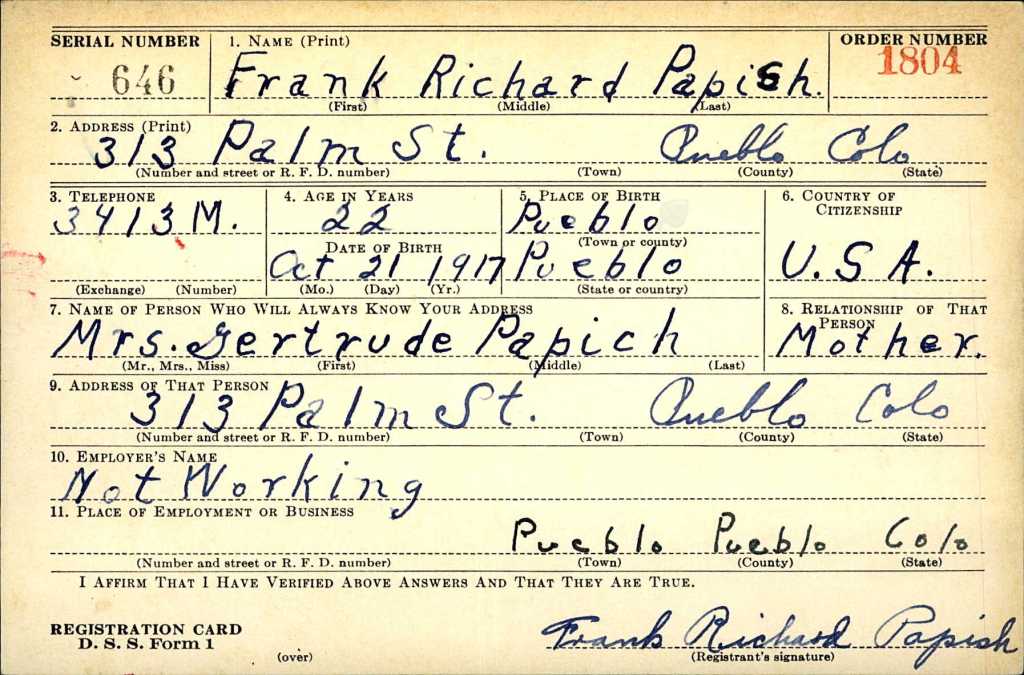 SERIAL NUMBER 1. NAME (Print) ORDER NUMBER
646 Frank Richard Papish. 1804
(First) (Middle) (Last)
2. ADDRESS (Print)
313 Palm St. Pueblo Colo
(Number and street or R. F. D. number) (Town) (County) (State)
3. TELEPHONE 4. AGE IN YEARS 5. PLACE OF BIRTH 6. COUNTRY OF CITIZENSHIP
3413 M. 22 Pueblo
(Town or county)
DATE OF BIRTH
Oct 21 1917 Pueblo U.S A.
(Exchange) (Number) (Mo.) (Day) (Yr.) (State or country)
7. NAME OF PERSON WHO WILL ALWAYS KNOW YOUR ADDRESS 8. RELATIONSHIP OF THAT PERSON
Mrs. Gertrude Papich Mother.
(Mr., Mrs., Miss) (First) (Middle) (Last)
9. ADDRESS OF THAT PERSON
313 Palm St. Pueblo Colo
(Number and street or R. F. D. number) (Town) (County) (State)
10. EMPLOYER'S NAME
Not Working
11. PLACE OF EMPLOYMENT OR BUSINESS
Pueblo Pueblo Colo
(Number and street or R. F. D. number) (Town) (County) (State)
I AFFIRM THAT I HAVE VERIFIED ABOVE ANSWERS AND THAT THEY ARE TRUE.
REGISTRATION CARD
D. S. S. Form 1
(over)
Frank Richard Papish
(Registrant's signature)